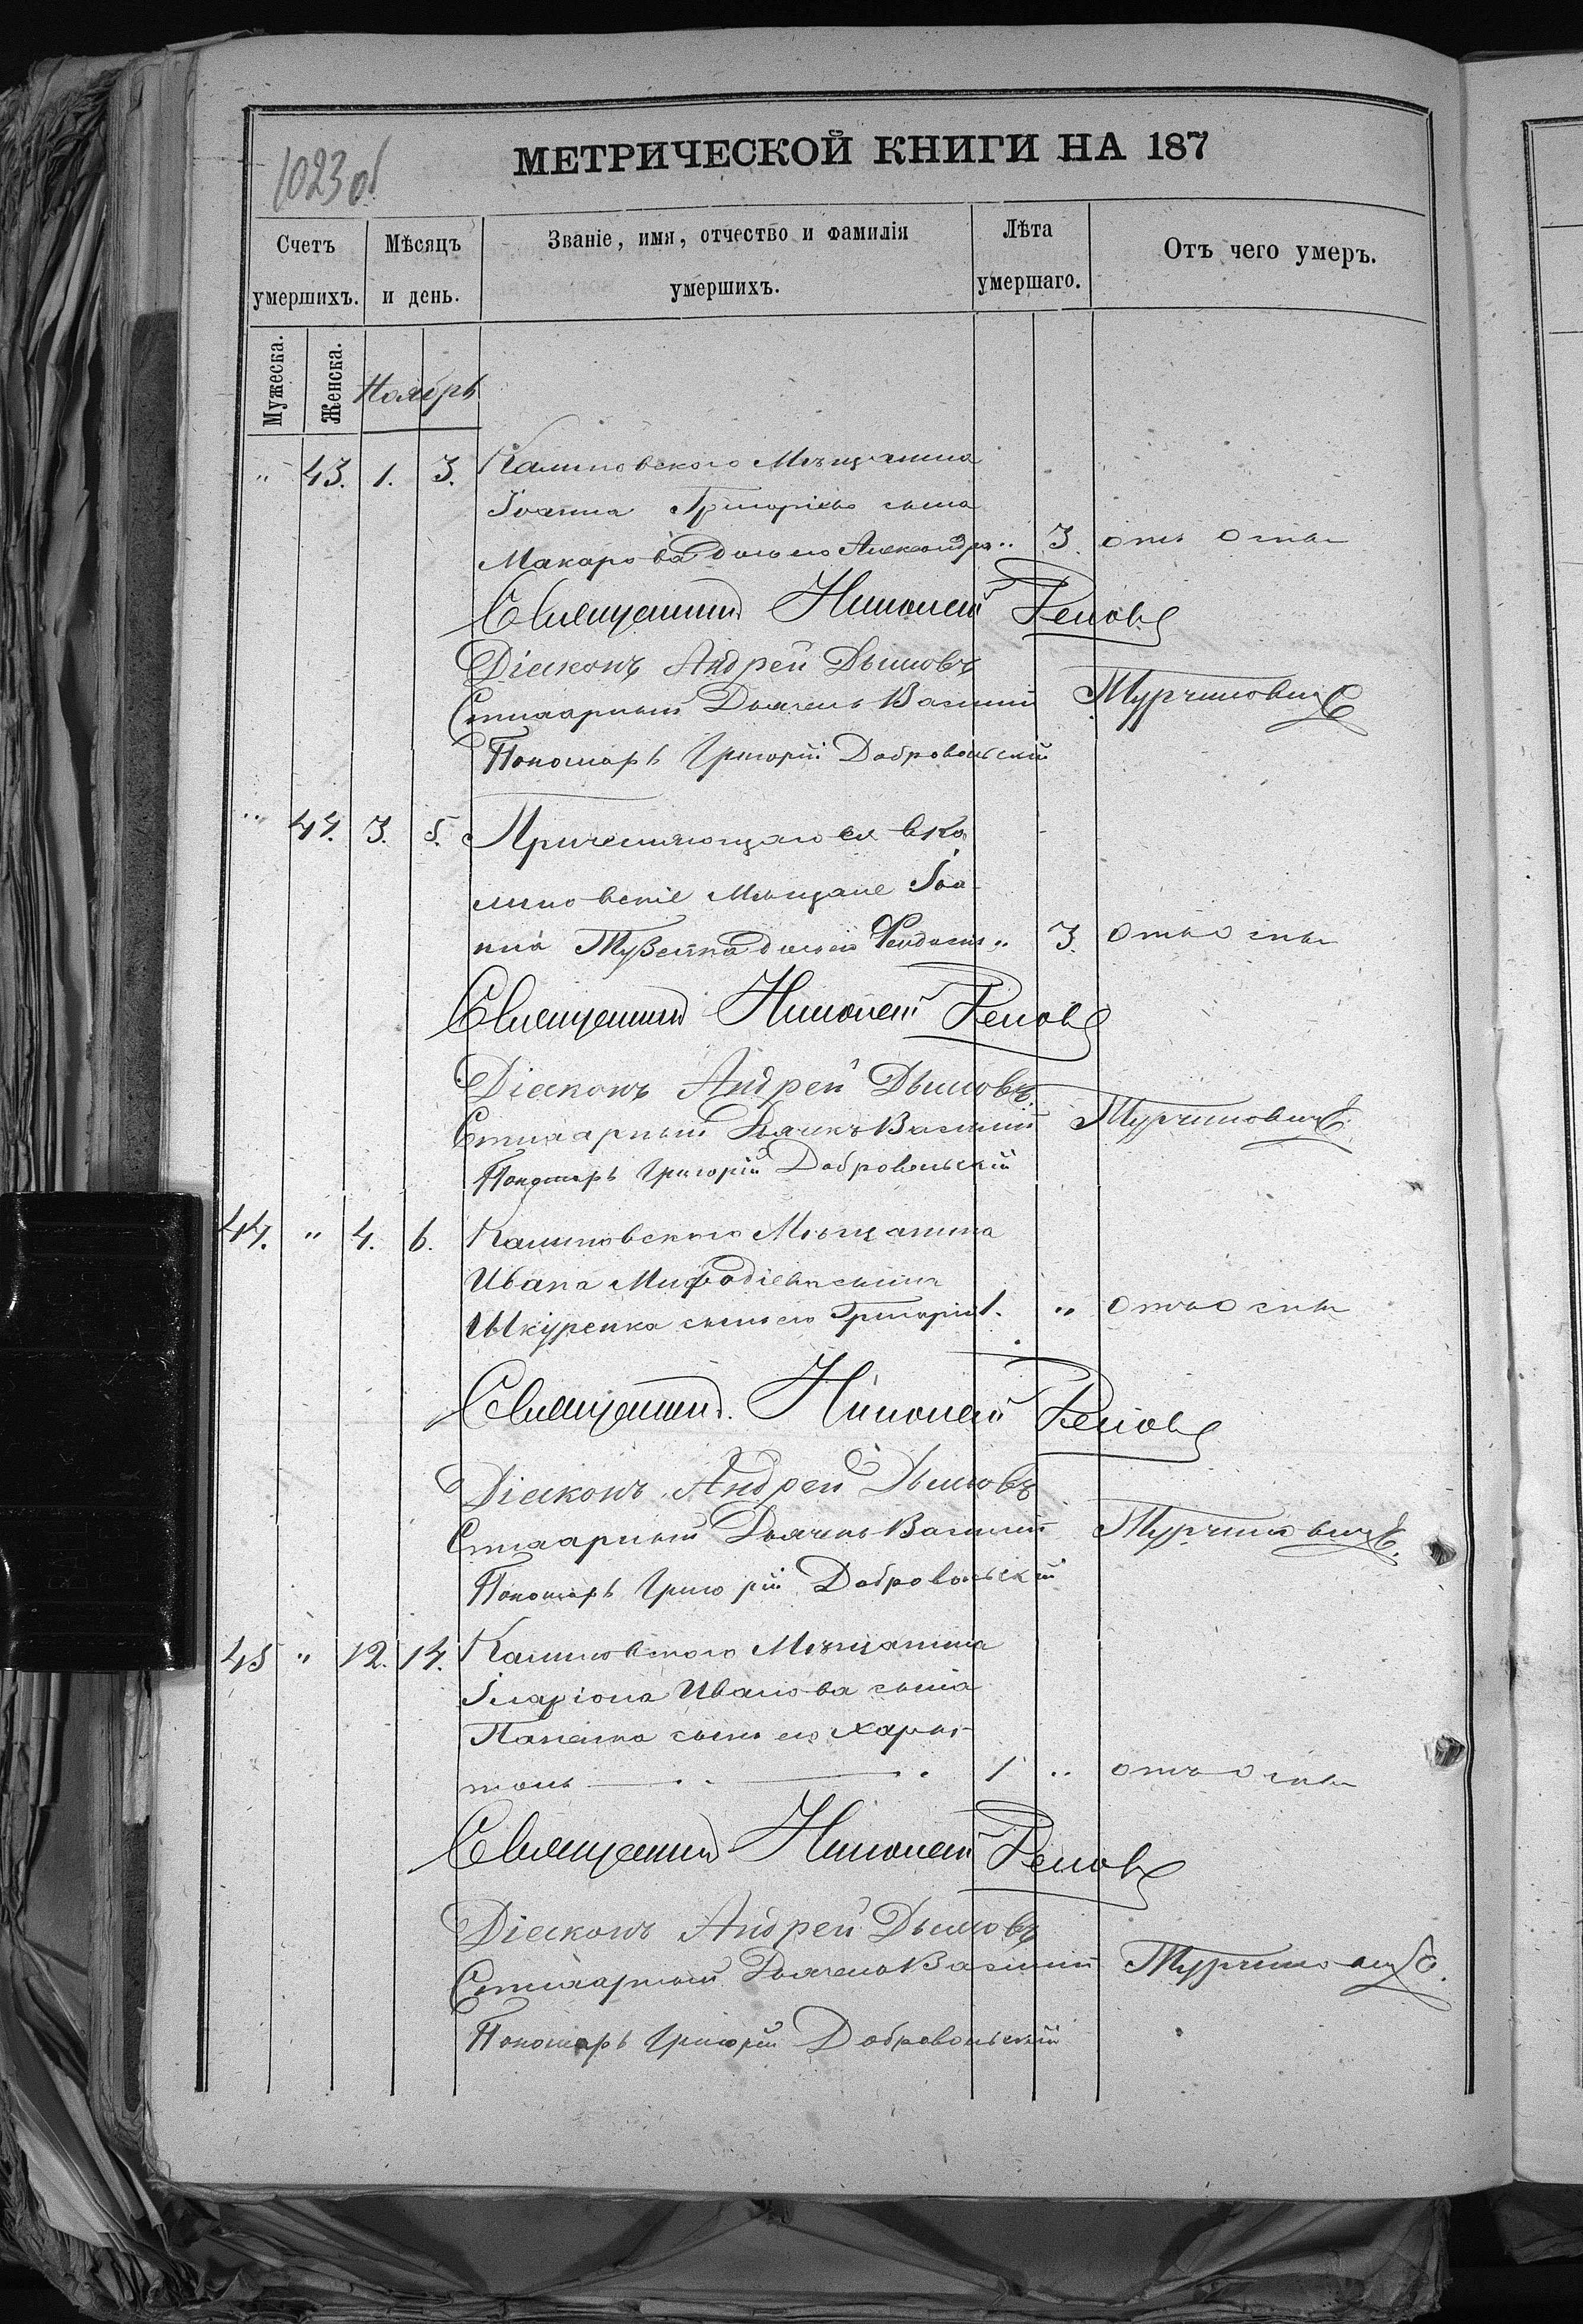 1023 об
МЕТРИЧЕСКОЙ КНИГИ НА 187
Счетъ умершихъ.
Мѣсяцъ и день.
Званіе, имя, отчество и фамилія умершихъ.
Лѣта умершаго.
Отъ чего умеръ.
Мужеска.
Женска.
Ноябрь
" 43. 1. 3. Калиновского Мѣщанина
Іоанна Григоріева сына
Макарова дочь его Александра " 3. отъ оспы
Священникъ Николай
Діаконъ Андрей Дымовъ
Стихарный Дьячекъ Василій
Пономарь Григорій Добровольскій
" 44. 3. 5. Причисляющагося в Ка
линовскіе Мѣщане Іоа
нна дочь его Феодосія " 3. отъ оспы
Священникъ Николай
Діаконъ Андрей Дымовъ
Стихарный Дьячекъ Василій
Пономарь Григорій Добровольскій
44. " 4. 6. Калиновского Мѣщанина
Ивана Мифодіева сына
Шкуренка сынъ его Григорій 1. " отъ оспы
Священникъ Николай
Діаконъ Андрей Дымовъ
Стихарный Дьячекъ Василій
Пономарь Григорій Добровольскій
45 " 12. 14. Калиновского Мѣщанина
Іларіона Иванова сына
сынъ его Хари-
тонъ 1 " отъ оспы
Священникъ Николай
Діаконъ Андрей Дымовъ
Стихарный Дьячекъ Василій
Пономарь Григорій Добровольскій